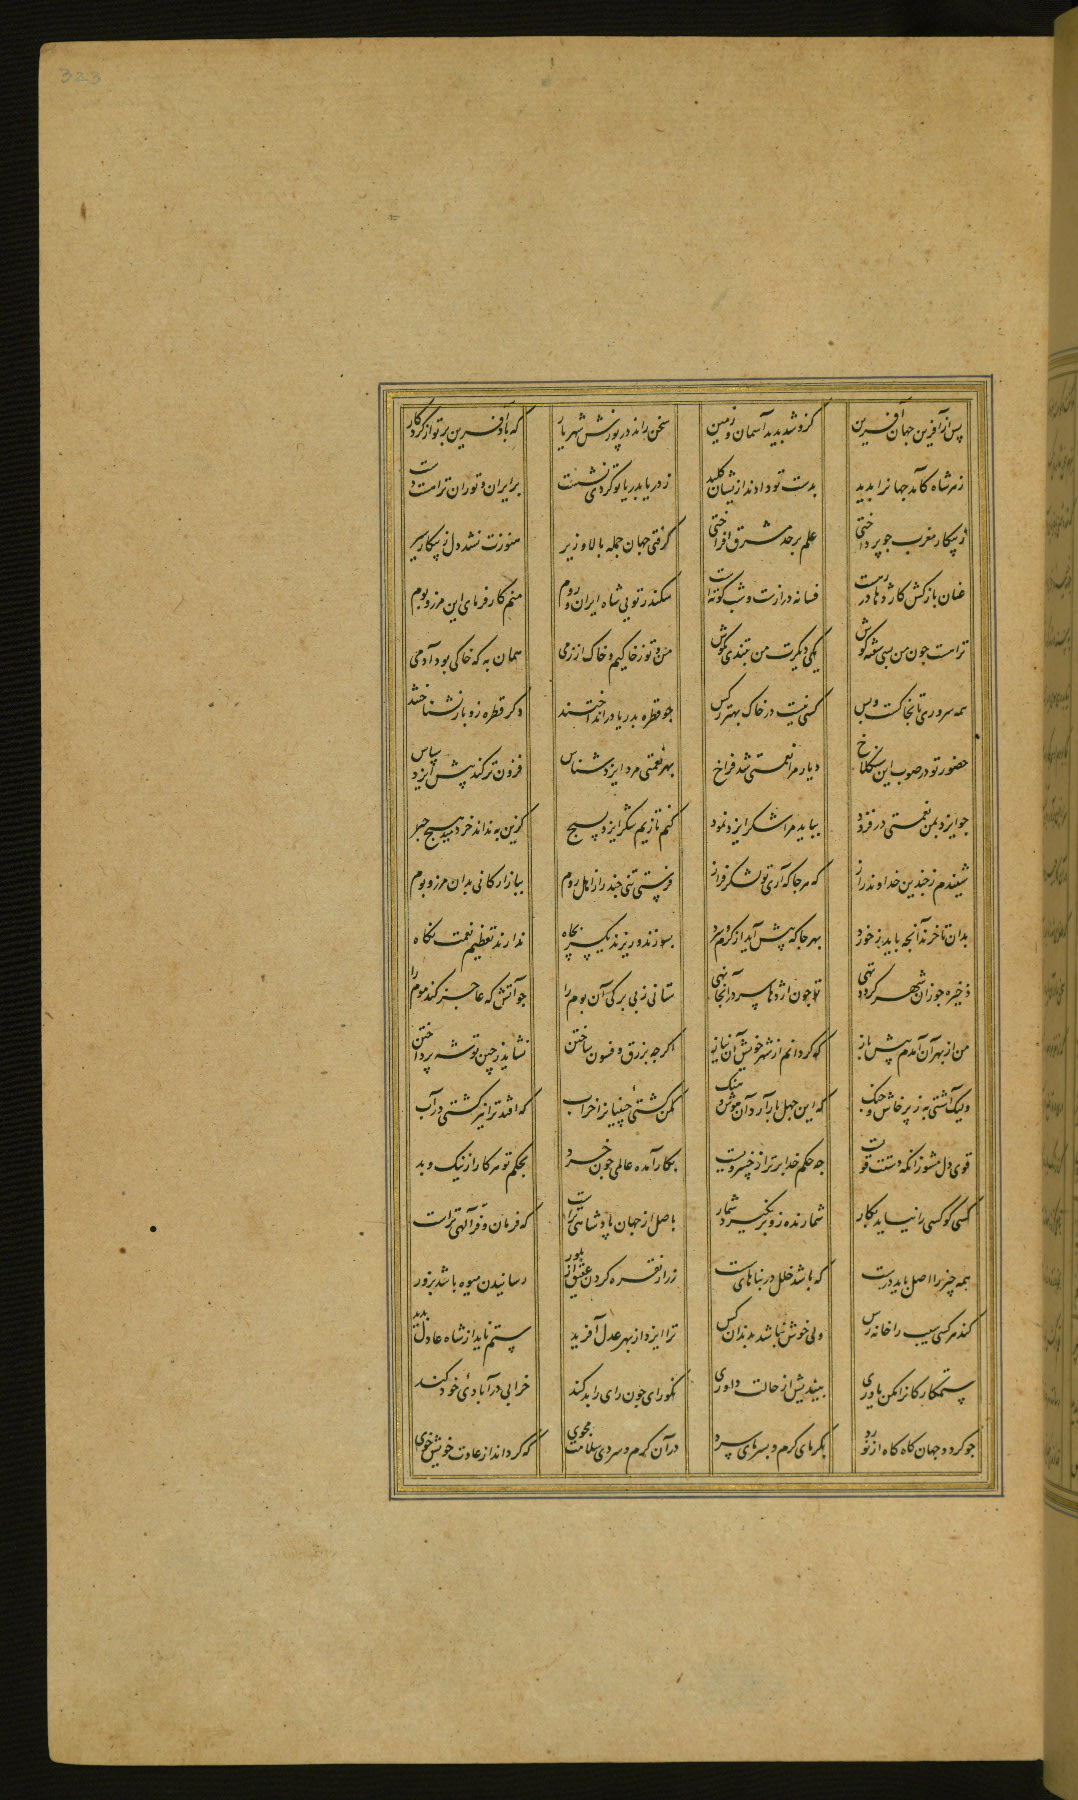 323
پس از آفرین جهان آفرین کزو شد پدید آسمان و زمین سخن راند در پوزش شهریار که باد آفرین بر تو از کردکار
ز هر شاه کآمد جهانرا پدید بدست تو دادند ازیشان کلید ز دریا بدریا تو کردی نشست بر ایران و توران تراست دست
ز پیکار مغرب چو پرداختی علم بر حد مشرق افراختی کرفتی جهان جمله بالا و زیر هنوزت نشد دل ز پیکار سیر
عنان بازکش کاژدها در رهست فسانه درازست و شب کوتهست سکندر تویی شاه ایران و روم منم کارفرمای این مرز و بوم
تراست چون من بسی سفته کوش یکی دیکرت من تبندی بکوش من و تو ز خاکیم و خاک از زمی همان به که خاکی بود آدمی
همه سروری تا بخاکست و بس کسی نیست در خاک بهتر ز کس چو قطره بدریا درانداختند دکر قطره زو باز نشناختند
حضور تو در صوب این سنکلاخ دیار مرا نعمتی شد فراخ بهر نعمتی مرد ایزدشناس فزون تر کند پیش ایزد سپاس
چو ایزد بمن نعمتی در فزود بباید مرا شکر ایزد نمود کنم تا زیم شکر ایزد بسیج کزین به نداند خردمند هیچ
شنیدم ز چندین خداوند راز که هر جا که آری تو لشکر فراز فرستی تنی چند را ز اهل روم ببازارکانی بدان مرز و بوم
بدان تا خرند آنچه یابند ز خورد بهر جا که پیش آید از کرم و سرد بسوزند و ریزند یکسر بچاه ندارند تعظیم نعمت نکاه
ذخیره چو زان شهر کردد تهی تو چون اژدها سر در آنجا نهی ستانی ز بی برکی آن بوم را چو آتش که عاجز کند موم را
من از بهر آن آمدم پیش باز که کردانم از شهر خویش آن نیاز اکر چه بزرق و فسون ساختن نشاید ز چین توشه پرداختن
ولیک آشتی به ز پرخاش و جنک که این جهل بار آرد آن هوش و سنک مکن کشتی چینیانرا خراب که افتد ترا نیز کشتی در آب
قوی دل مشو زانکه دستت قویست که حکم خدا برتر از خسرویست بکار آمده عالمی چون خرد بحکم تو هر کار از نیک و بد
کسی کو کسی را نیاید بکار شمارنده زو برنکیرد شمار باصل از جهان پادشاهی تراست که فرمان و فر آلهی تراست
همه چیز را اصل باید درست که باشد خلل در بناهای سست زر از نقره کردن عقیق از بلور رسانیدن میوه باشد بزور
کند هر کسی سیب را خانه رس ولی خوش نباشد بدندان کس ترا ایزد از بهر عدل آفرید ستم ناید از شاه عادل پدید
ستمکارکانرا مکن یاوری بیندیش از حالت داوری نکورای چون رای را بد کند خرابی در آبادئ خود کند
چو کردد جهان کاه کاه از نورد بکرمای کرم و بسرمای سرد در آن کرم و سردی سلامت مجوی که کرداند از عادت خویش خوی